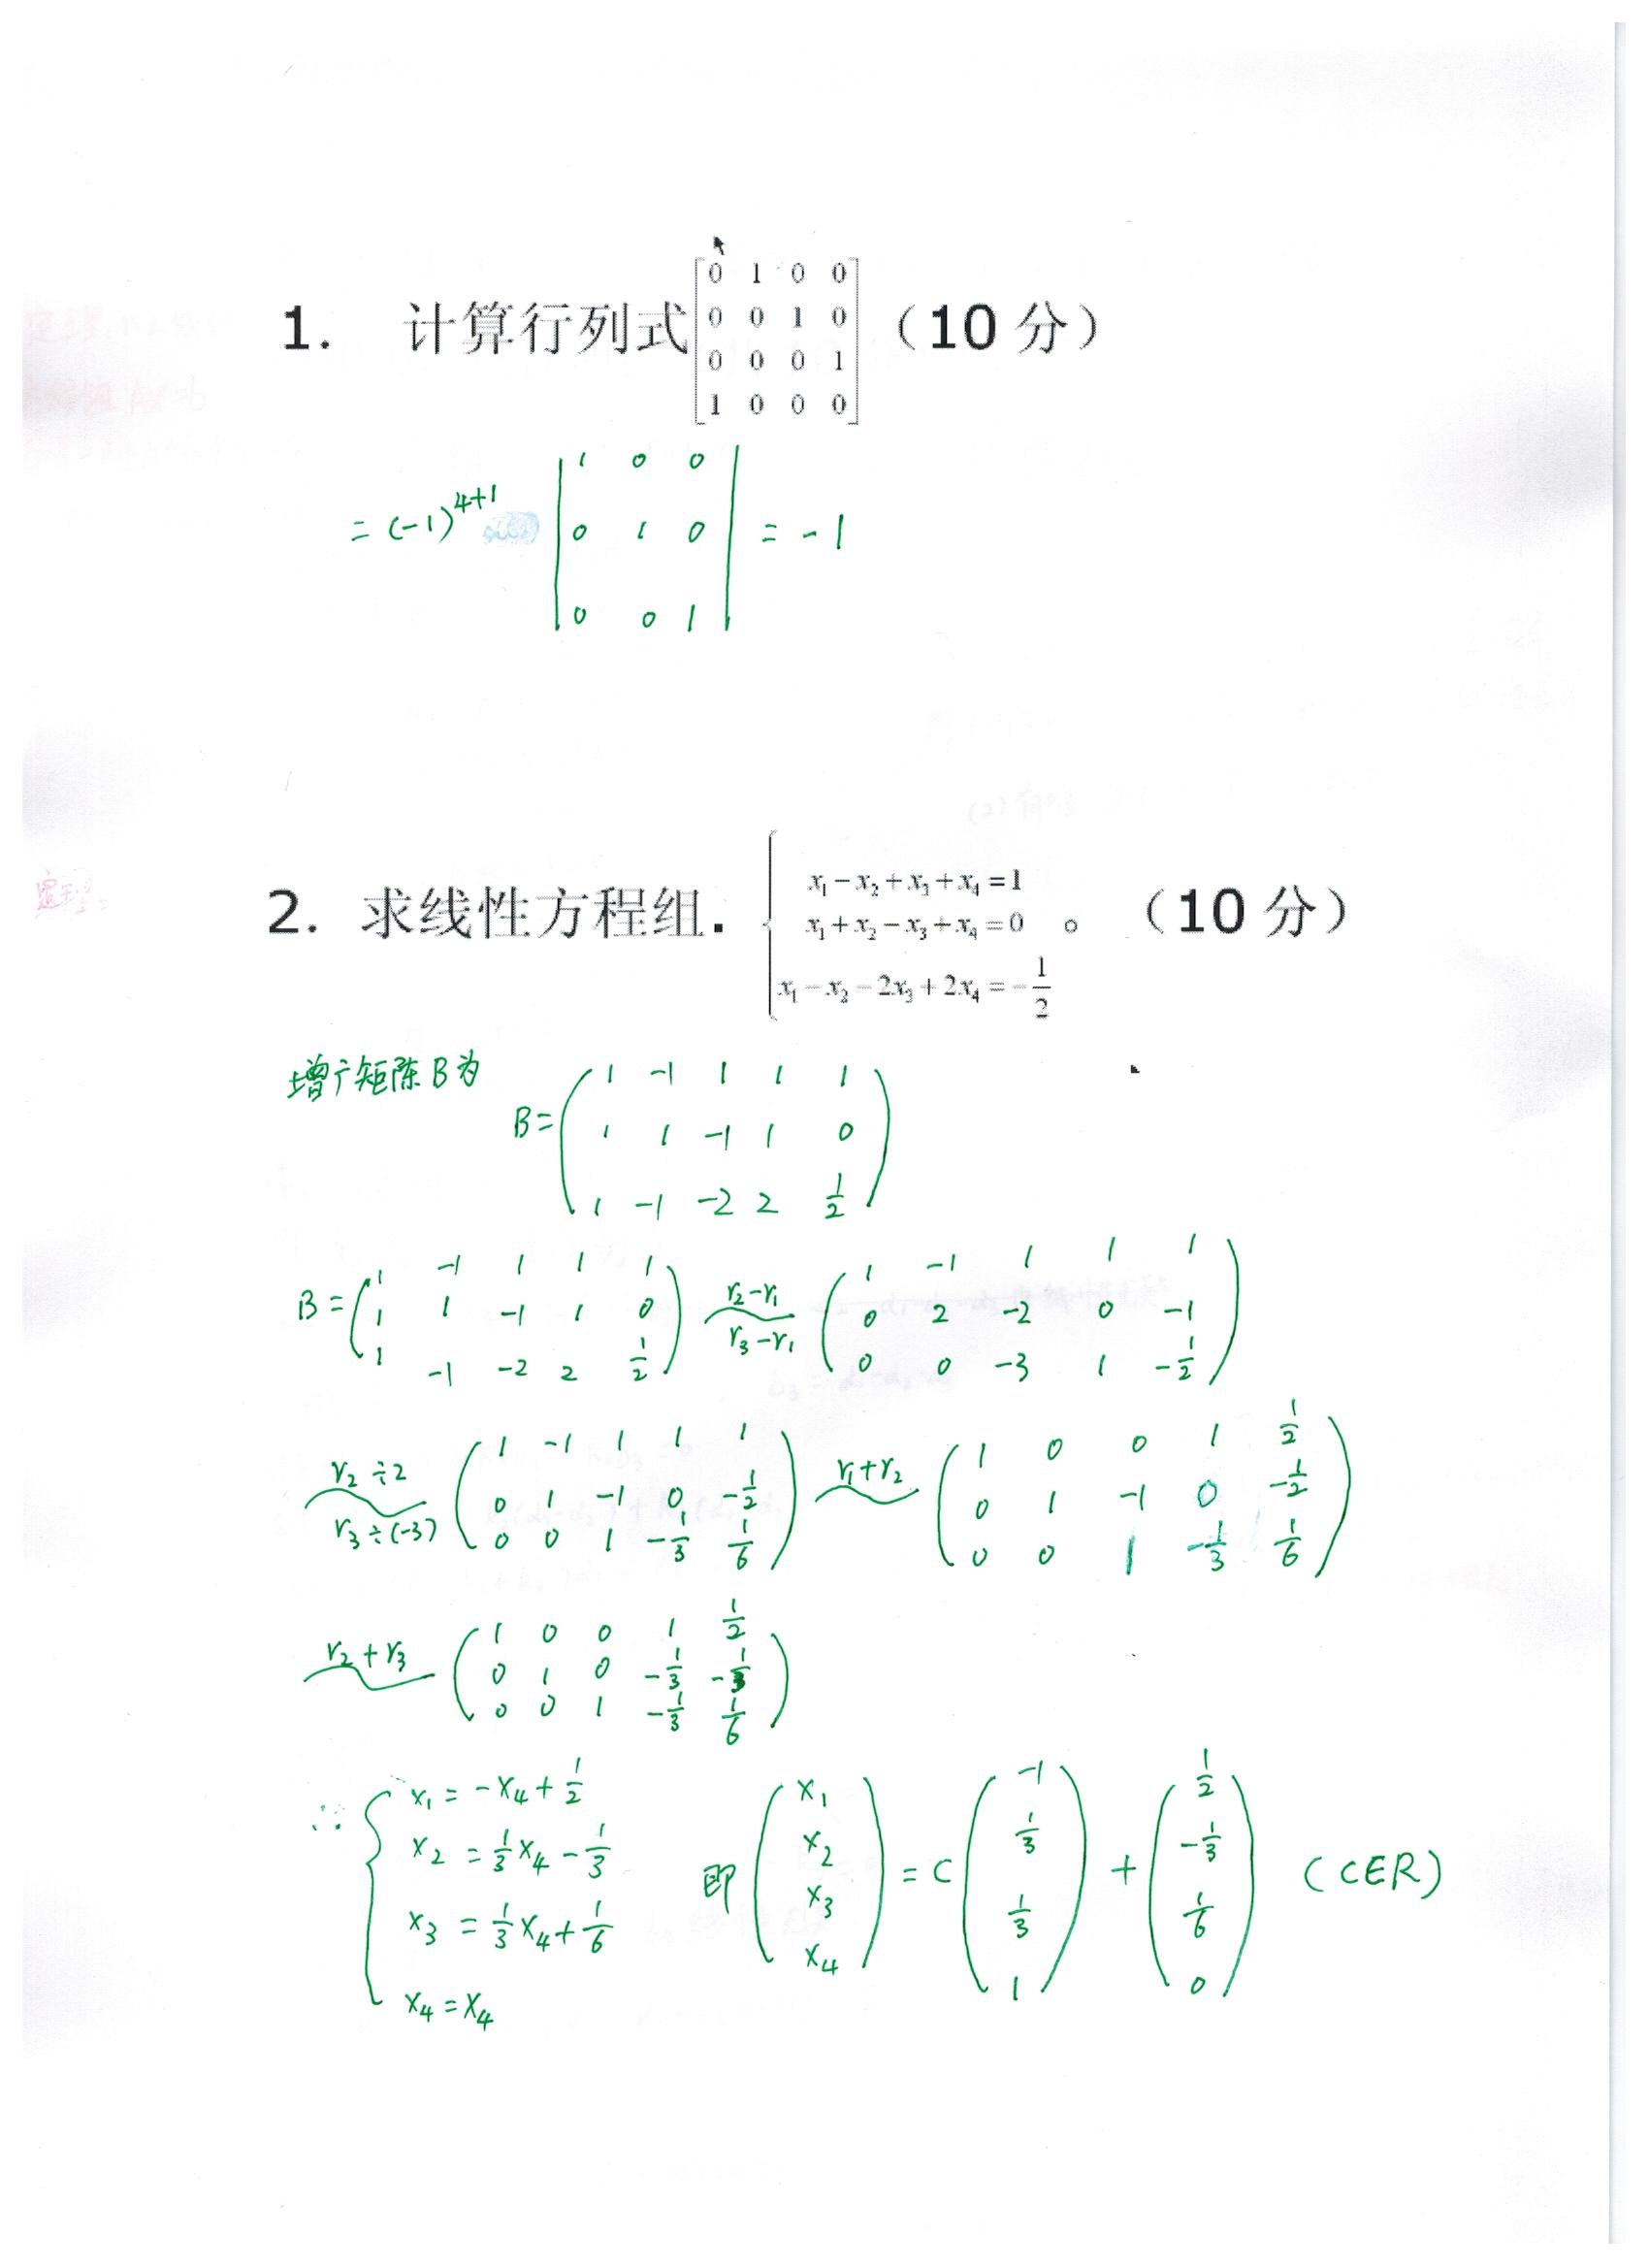 1. 计算行列式 [0 1 0 0
0 0 1 0
0 0 0 1
1 0 0 0] （10 分）
= (-1)^{4+1} | 1 0 0
0 1 0
0 0 1 | = -1
2. 求线性方程组. { x₁ - x₂ + x₃ + x₄ = 1
x₁ + x₂ - x₃ + x₄ = 0 。 （10 分）
x₁ - x₂ - 2x₃ + 2x₄ = -1/2
增广矩陈B为
B= ( 1 -1 1 1 1
1 1 -1 1 0
1 -1 -2 2 1/2 )
B = ( 1 -1 1 1 1
1 1 -1 1 0
1 -1 -2 2 1/2 ) r₂-r₁ r₃-r₁ ( 1 -1 1 1 1
0 2 -2 0 -1
0 0 -3 1 -1/2 )
r₂÷2 r₃÷(-3) ( 1 -1 1 1 1
0 1 -1 0 -1/2
0 0 1 -1/3 1/6 ) r₁+r₂ ( 1 0 0 1 1/2
0 1 -1 0 -1/2
0 0 1 -1/3 1/6 )
r₂+r₃ ( 1 0 0 1 1/2
0 1 0 -1/3 -1/3
0 0 1 -1/3 1/6 )
∴ { x₁ = -x₄ + 1/2
x₂ = 1/3 x₄ - 1/3
x₃ = 1/3 x₄ + 1/6
x₄ = x₄
即 ( x₁
x₂
x₃
x₄ ) = C ( -1
1/3
1/3
1 ) + ( 1/2
-1/3
1/6
0 ) (C∈R)